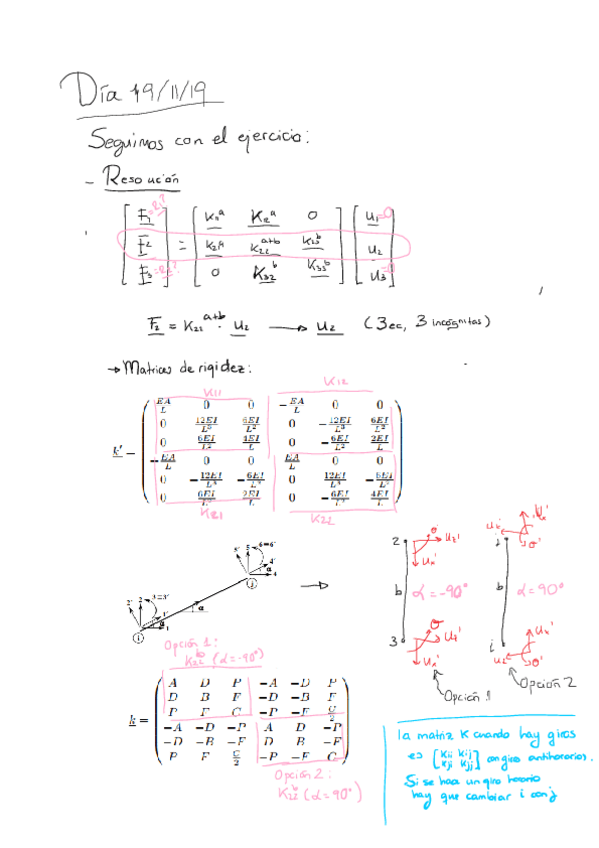 Día 19/11/19
Seguimos con el ejercicio:
- Resolución
[F₁ =R₁? ; F₂ ; F₃ =R₃?] = [K₁₁ᵃ K₁₂ᵃ 0 ; K₂₁ᵃ K₂₂ᵃ⁺ᵇ K₂₃ᵇ ; 0 K₃₂ᵇ K₃₃ᵇ] [u₁=0 ; u₂ ; u₃=0]
F₂ = K₂₂ᵃ⁺ᵇ · u₂ → u₂ (3ec, 3 incógnitas)
→ Matrices de rigidez:
K11 K12
EA/L 0 0 -EA/L 0 0
0 12EI/L³ 6EI/L² 0 -12EI/L³ 6EI/L²
0 6EI/L² 4EI/L 0 -6EI/L² 2EI/L
k' =
-EA/L 0 0 EA/L 0 0
0 -12EI/L³ -6EI/L² 0 12EI/L³ -6EI/L²
0 6EI/L² 2EI/L 0 -6EI/L² 4EI/L
K21 K22
5' 5 6=6'
4'
α 4
j
2' 2 3=3'
1'
α 1
i
→
2 θ' u₂'
uₓ'
b α=-90°
3 θ' u₂'
uₓ'
Opción 1
j uₓ'
θ'
b α=90°
i uₓ'
θ'
Opción 2
Opción 1:
K₂₂ᵇ (α=-90°)
A D P -A -D P
D B F -D -B F
P F C -P -F C/2
k =
-A -D -P A D -P
-D -B -F D B -F
P F C/2 -P -F C
Opción 2:
K₂₂ᵇ (α=90°)
la matriz K cuando hay giros
es [Kii Kij ; Kji Kjj] con giro antihorario.
Si se hace un giro horario
hay que cambiar i con j